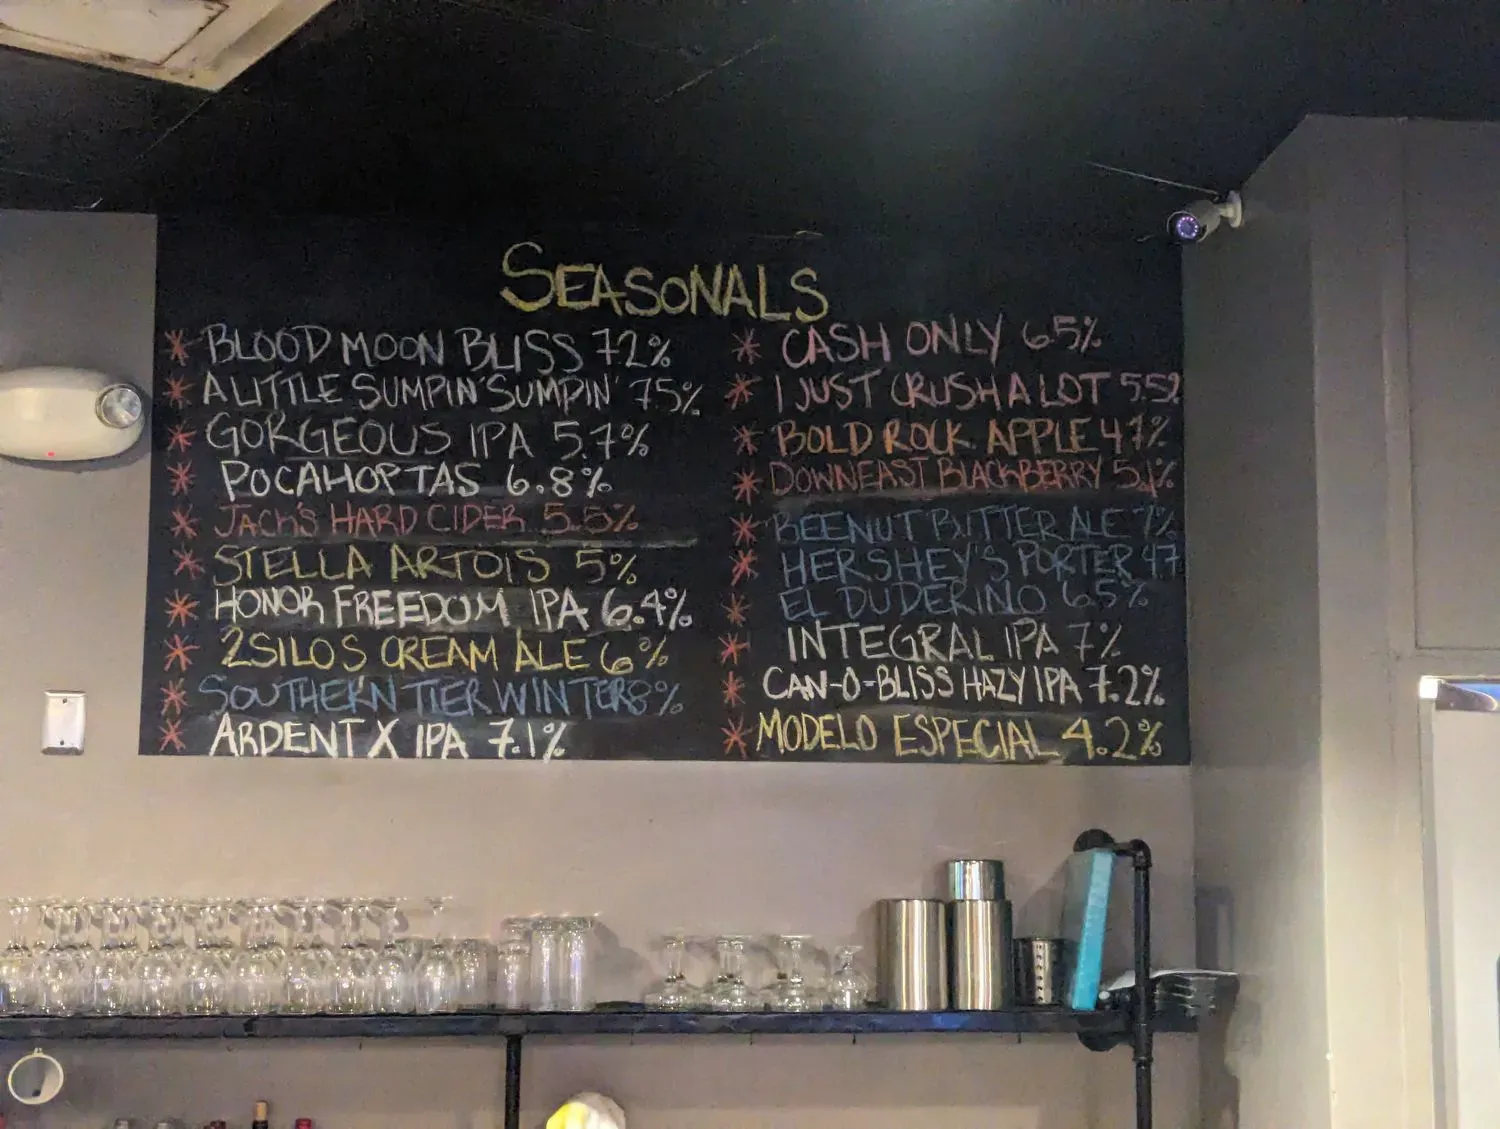 SEASONALS
* BLOOD MOON BLISS 7.2%
* A LITTLE SUMPIN' SUMPIN' 7.5%
* GORGEOUS IPA 5.7%
* POCAHOPTAS 6.8%
* JACK'S HARD CIDER 5.5%
* STELLA ARTOIS 5%
* HONOR FREEDOM IPA 6.4%
* 2SILOS CREAM ALE 6%
* SOUTHERN TIER WINTER 8%
* ARDENT X IPA 7.1%
* CASH ONLY 6.5%
* I JUST CRUSH A LOT 5.5%
* BOLD ROCK APPLE 4.7%
* DOWNEAST BLACKBERRY 5.1%
* BEENUT BUTTER ALE 7%
* HERSHEY'S PORTER 47
* EL DUDERINO 6.5%
* INTEGRAL IPA 7%
* CAN-O-BLISS HAZY IPA 7.2%
* MODELO ESPECIAL 4.2%